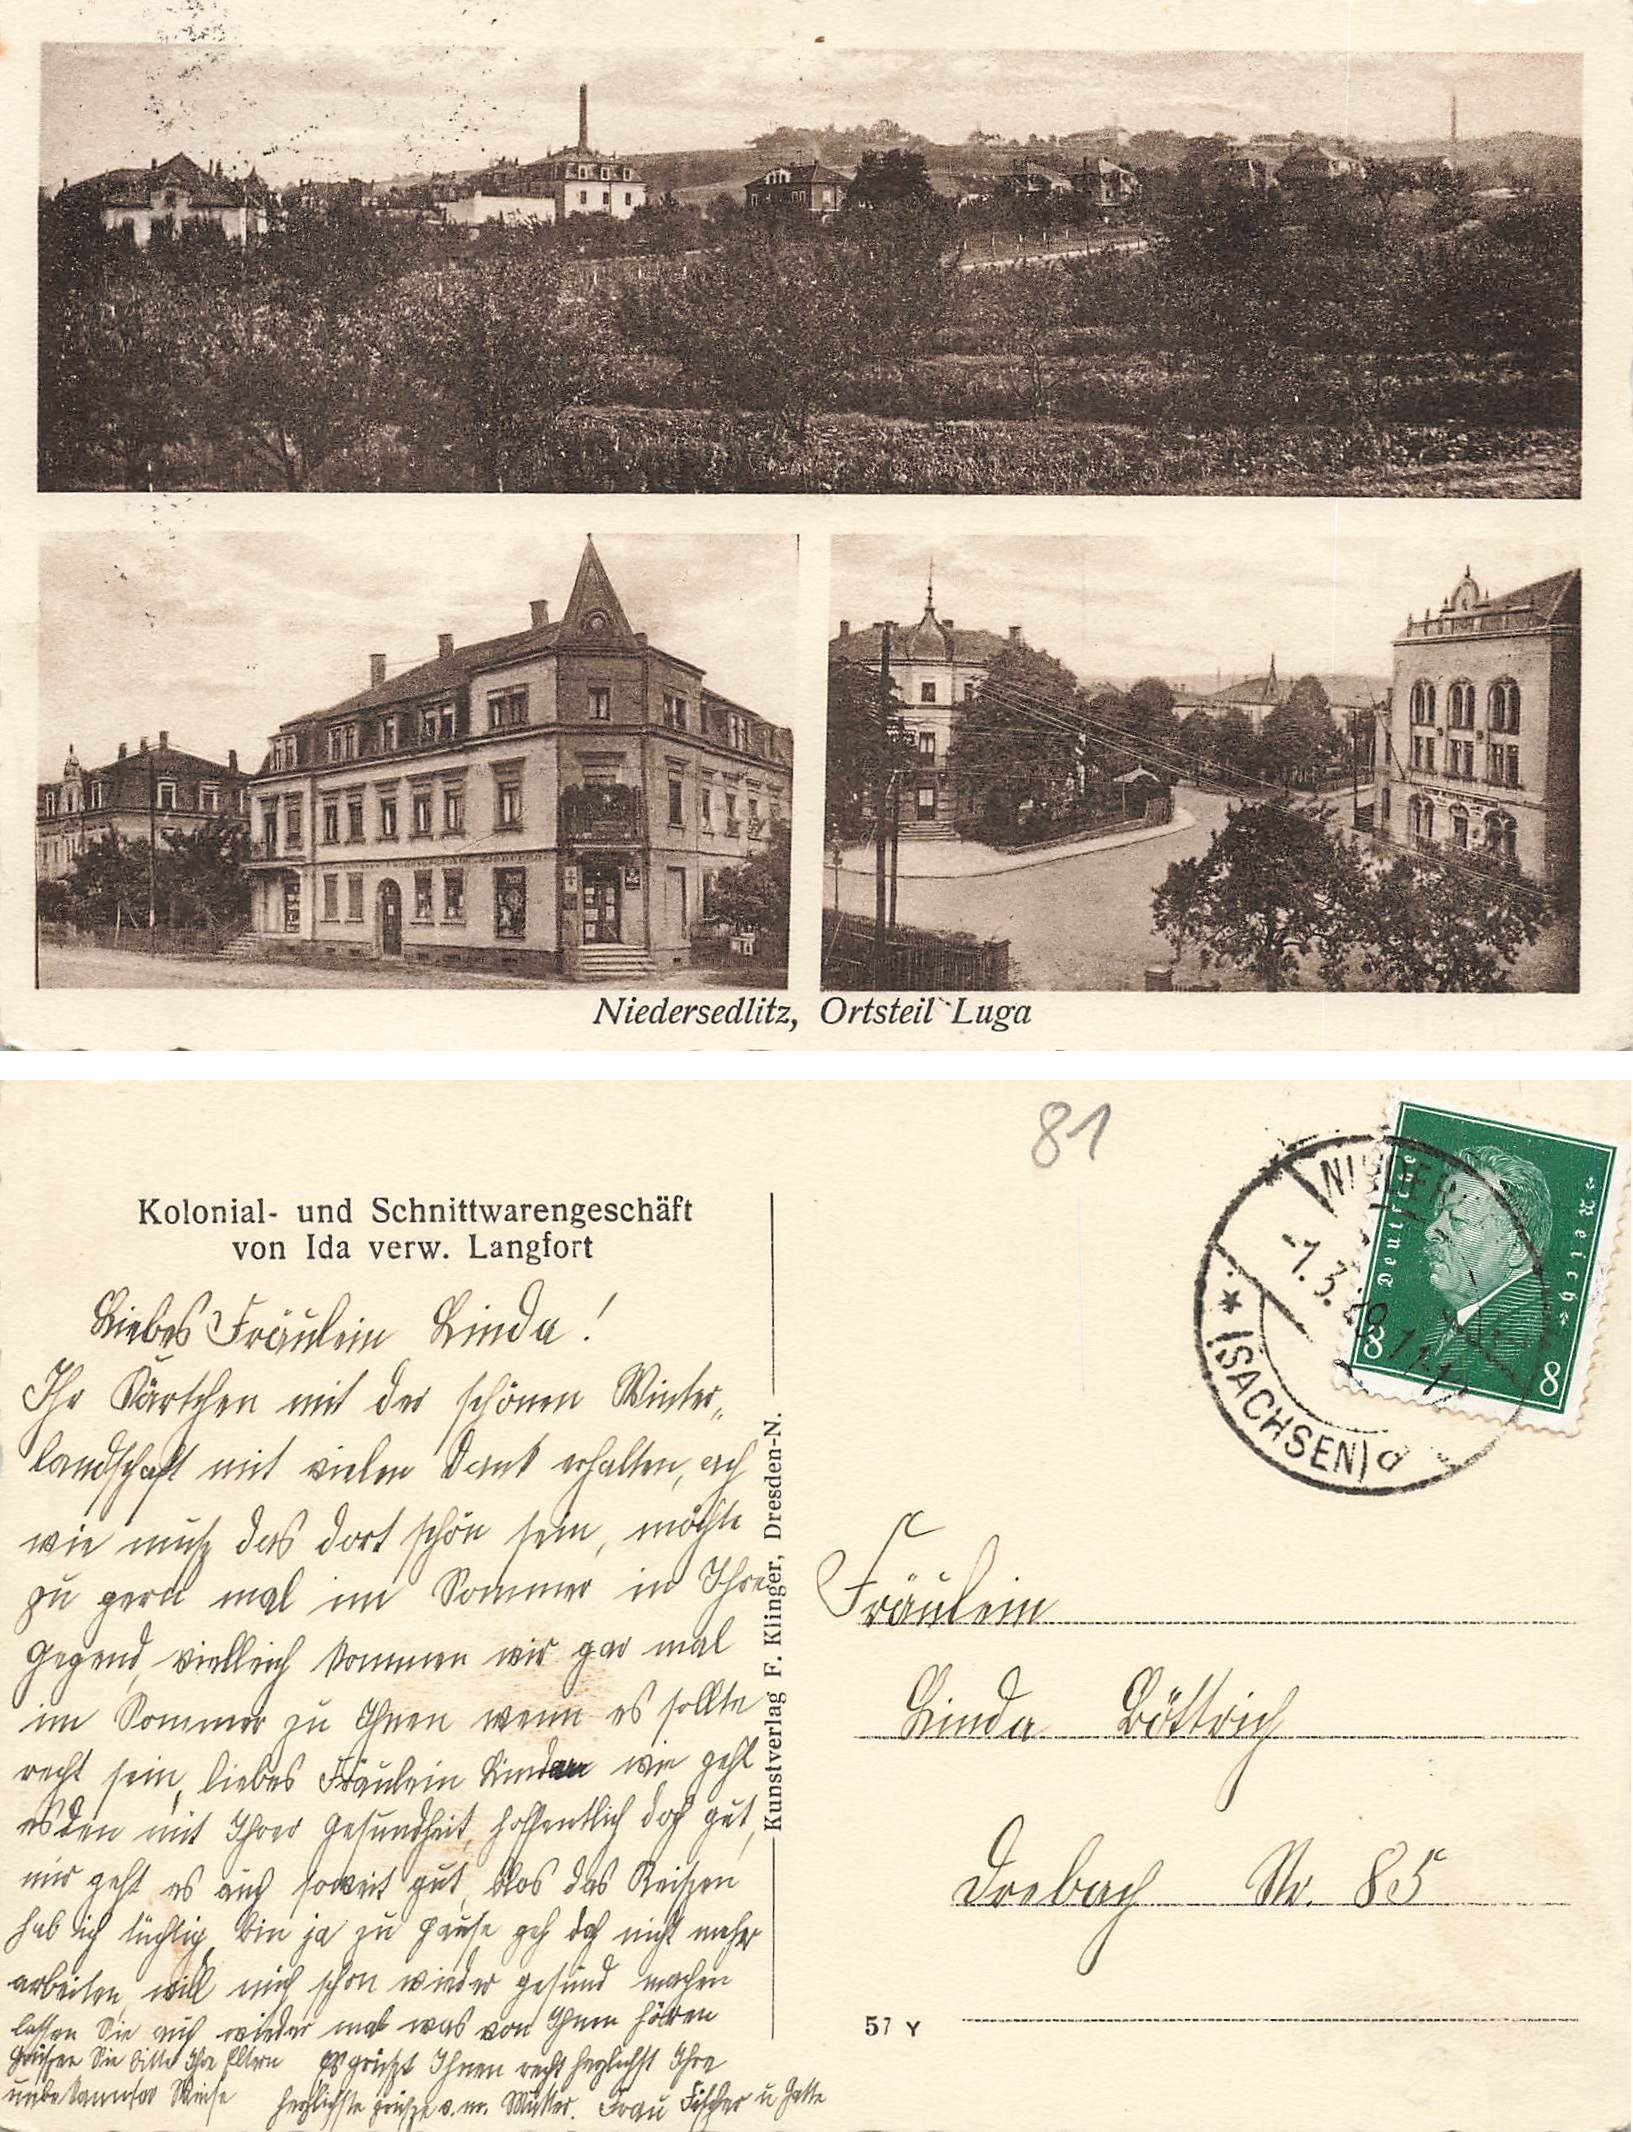 Niedersedlitz, Ortsteil Luga
81
Kolonial- und Schnittwarengeschäft
von Ida verw. Langfort
Deutsches Reich
8 8
NIEDER
-1.3.29
(SACHSEN) d
Liebes Fräulein Linda!
Ihr Kärtchen mit der schönen Winter„
landschaft mit vielen Dank erhalten, ach
wie muß das dort schön sein, möchte
zu gern mal im Sommer in Ihre
Gegend, vielleich kommen wir gar mal
im Sommer zu Ihnen wenn es sollte
recht sein, liebes Fräulein Linda wie geht
es den mit Ihrer Gesundheit, hoffentlich doch gut,
mir geht es auch soweit gut, blos das Reißen
hab ich tüchtig, bin ja zu Hause geh doch nicht meher
arbeiten, will mich schon wieder gesund machen
lassen Sie auch wieder mal was von Ihnen hören
Grüßen Sie bitte Ihre Eltern Es grüßt Ihnen recht herzlichst Ihre
unbekannter Weise herzlichste Grüße v. m. Mutter. Frau Fischer u
Kunstverlag F. Klinger, Dresden-N.
Fräulein
Linda Böttrich
Drebach Nr. 85
57 Y